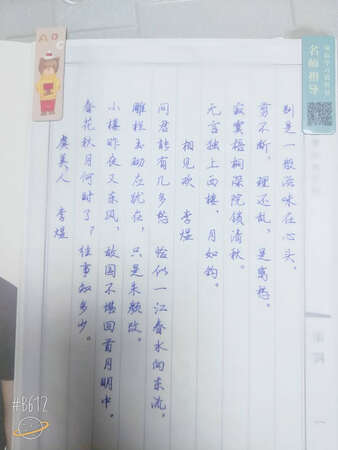 虞美人 李煜
春花秋月何时了?往事知多少。
小楼昨夜又东风,故国不堪回首月明中。
雕栏玉砌应犹在,只是朱颜改。
问君能有几多愁 恰似一江春水向东流。
相见欢 李煜
无言独上西楼,月如钩。
寂寞梧桐深院锁清秋。
剪不断,理还乱,是离愁。
别是一般滋味在心头。
名师指导
#B612